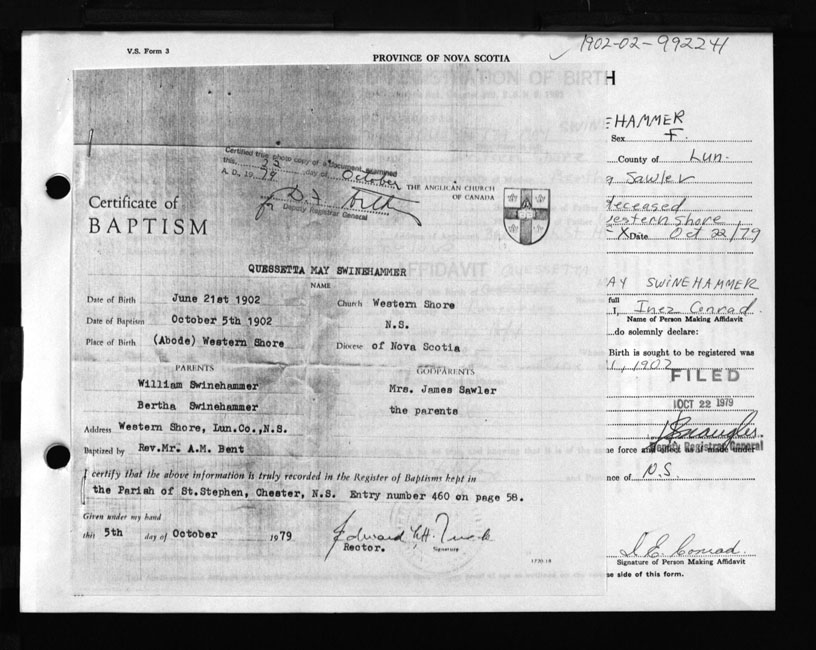 V.S. Form 3
1902-02-992241
PROVINCE OF NOVA SCOTIA
REGISTRATION OF BIRTH
H
Certified true photo copy of a document examined
this 22 day of October
A. D., 1979
for
Deputy Registrar General
THE ANGLICAN CHURCH
OF CANADA
Certificate of
BAPTISM
AFFIDAVIT
QUESSETTA MAY SWINEHAMMER
NAME
Date of Birth June 21st 1902
Church Western Shore
Date of Baptism October 5th 1902
N.S.
Place of Birth (Abode) Western Shore
Diocese of Nova Scotia
PARENTS
GODPARENTS
William Swinehammer
Mrs. James Sawler
Bertha Swinehammer
the parents
Address Western Shore, Lun.Co.,N.S.
Baptized by Rev.Mr. A.M. Bent
I certify that the above information is truly recorded in the Register of Baptisms kept in
the Parish of St.Stephen, Chester, N.S. Entry number 460 on page 58.
Given under my hand
this 5th day of October 1979
Rector. Signature
EHAMMER
Sex F.
County of Lun.
Sawler
deceased
Western Shore
X Date Oct 22/79
AY SWINEHAMMER
full
I, Inez Conrad
Name of Person Making Affidavit
do solemnly declare:
Birth is sought to be registered was
1, 1902
FILED
OCT 22 1979
Deputy Registrar General
me force and effect as if made under
nce of N.S.
I. E. Conrad.
Signature of Person Making Affidavit
se side of this form.